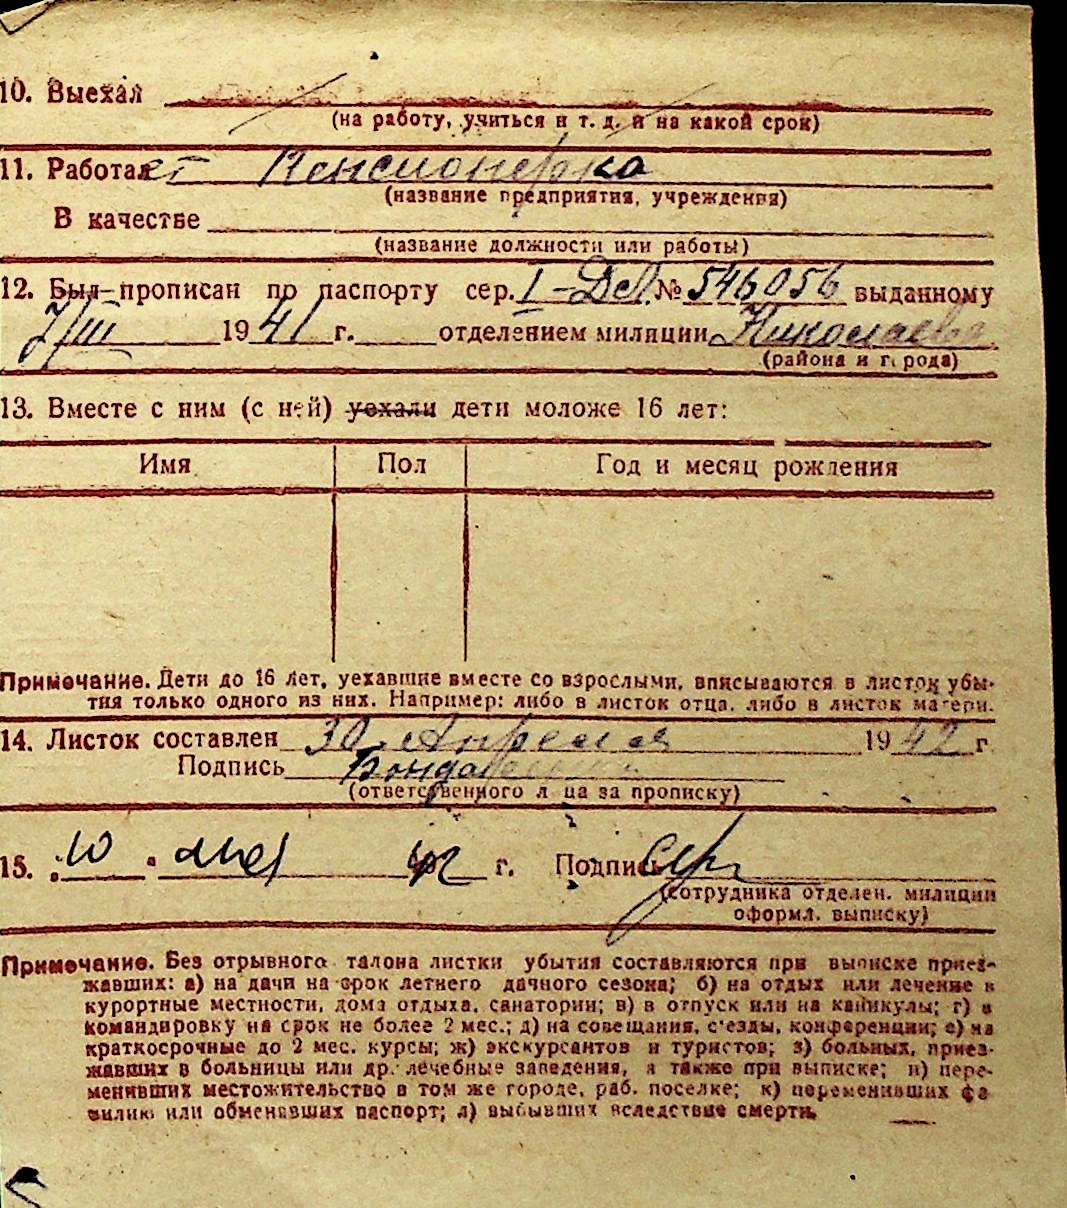 10. Выехал
(на работу, учиться и т. д. и на какой срок)
11. Работает Пенсионерка
(название предприятия, учреждения)
В качестве
(название должности или работы)
12. Был прописан по паспорту сер. I-ДсЛ № 546056 выданному
7/III 1941 г. отделением милиции Николаев
(района и города)
13. Вместе с ним (с ней) уехали дети моложе 16 лет:
Имя Пол Год и месяц рождения
Примечание. Дети до 16 лет, уехавшие вместе со взрослыми, вписываются в листок убы-
тия только одного из них. Например: либо в листок отца, либо в листок матери.
14. Листок составлен 30 Апреля 1942 г
Подпись
(ответственного лица за прописку)
15. 10 мая 42 г. Подпись
(сотрудника отделен. милиции
оформл. выписку)
Примечание. Без отрывного талона листки убытия составляются при выписке приез-
жавших: а) на дачи на срок летнего дачного сезона; б) на отдых или лечение в
курортные местности, дома отдыха, санатории; в) в отпуск или на каникулы; г) в
командировку на срок не более 2 мес.; д) на совещания, с'езды, конференции; е) на
краткосрочные до 2 мес. курсы; ж) экскурсантов и туристов; з) больных, приез-
жавших в больницы или др. лечебные заведения, а также при выписке; и) пере-
менивших местожительство в том же городе, раб. поселке; к) переменивших фа
милию или обменявших паспорт; л) выбывших вследствие смерти.